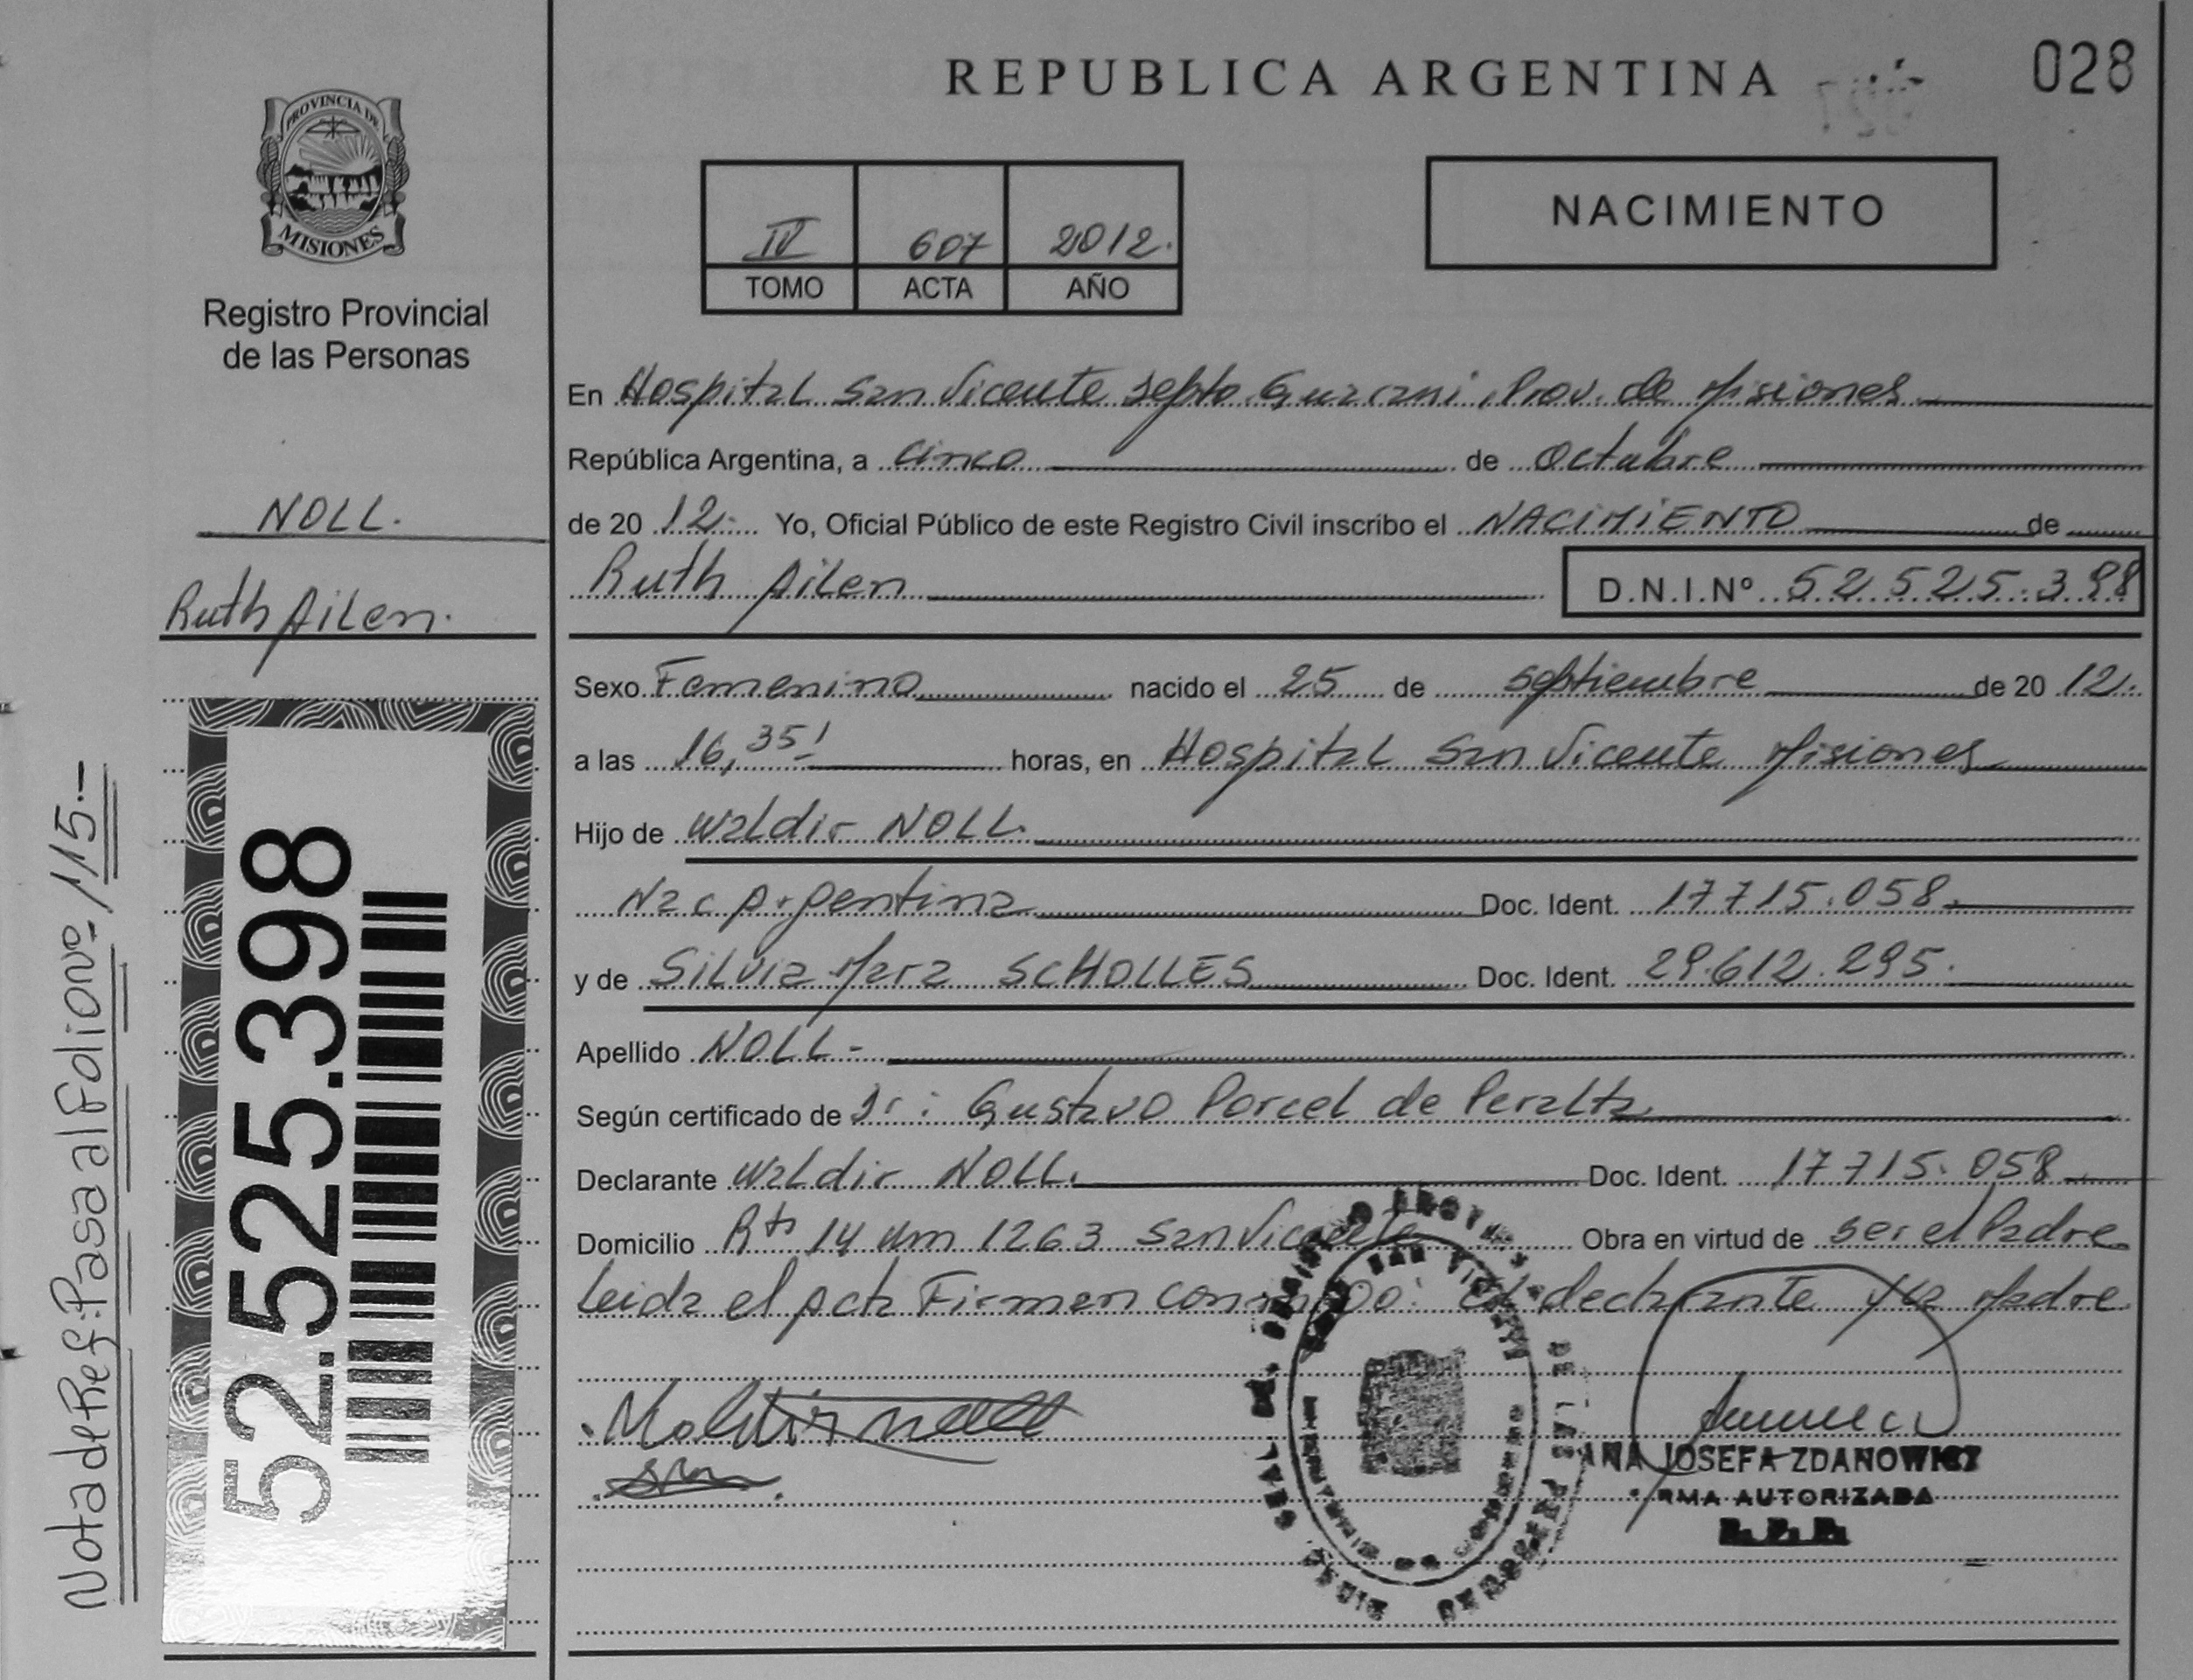 REPUBLICA ARGENTINA
028
PROVINCIA DE
MISIONES
Registro Provincial
de las Personas
IV 607 2012.
TOMO ACTA AÑO
NACIMIENTO
NOLL.
Ruth Ailen.
Nota de Ref: Pasa al Folio nº 115.-
52.525.398
En Hospital San Vicente Depto Guarani, Prov. de Misiones
República Argentina, a cinco de Octubre
de 20 12. Yo, Oficial Público de este Registro Civil inscribo el NACIMIENTO de
Ruth Ailen D.N.I.Nº 52.525.398
Sexo Femenino nacido el 25 de septiembre de 20 12.
a las 16,35' horas, en Hospital San Vicente Misiones
Hijo de Waldir NOLL.
Nac Argentina Doc. Ident. 17715.058.
y de Silvia Mara SCHOLLES Doc. Ident. 29.612.295.
Apellido NOLL-
Según certificado de Dr: Gustavo Porcel de Peralta
Declarante Waldir NOLL. Doc. Ident. 17715.058
Domicilio Rta 14 Km 1263 San Vicente Obra en virtud de ser el Padre
Leida el acta Firman conmigo: el declarante y la Madre
ANA JOSEFA ZDANOWICZ
RMA AUTORIZADA
R.P.P.